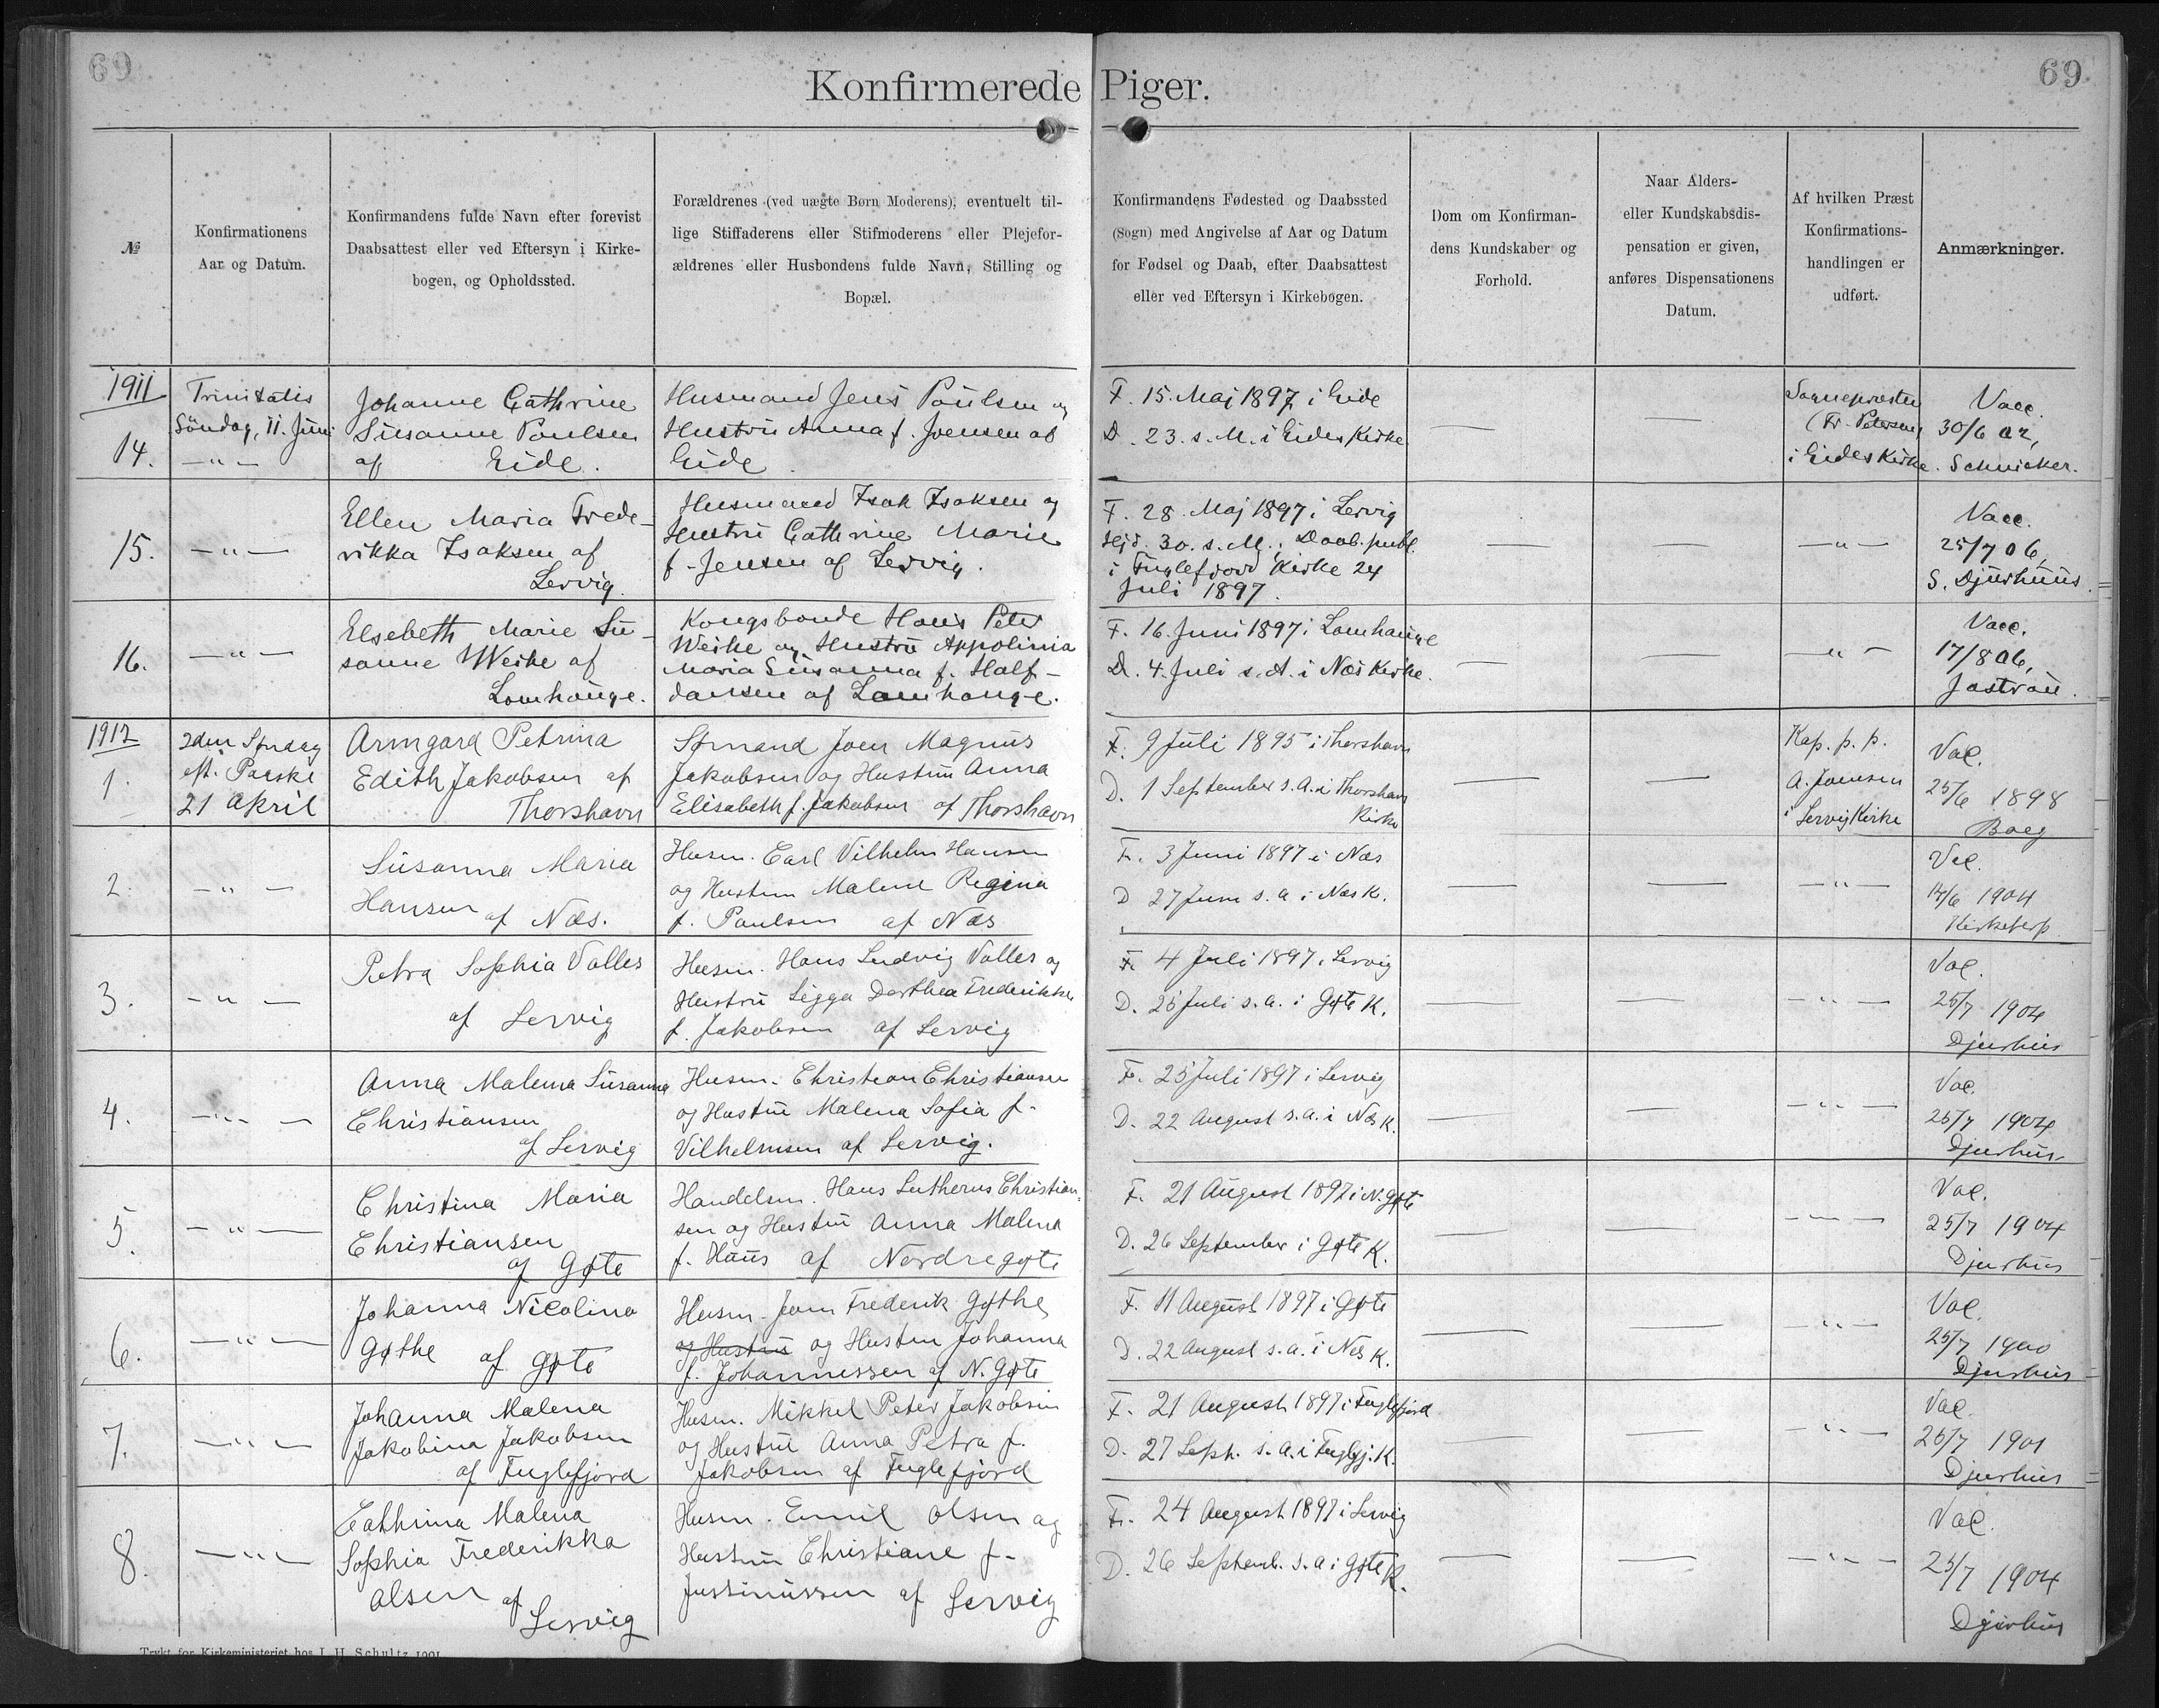 69
69
Konfirmerede Piger.
№
Konfirmationens
Aar og Datum.
Konfirmandens fulde Navn efter forevist
Daabsattest eller ved Eftersyn i Kirke-
bogen, og Opholdssted.
Forældrenes (ved uægte Børn Moderens), eventuelt til-
lige Stiffaderens eller Stifmoderens eller Plejefor-
ældrenes eller Husbondens fulde Navn, Stilling og
Bopæl.
Konfirmandens Fødested og Daabssted
(Sogn) med Angivelse af Aar og Datum
for Fødsel og Daab, efter Daabsattest
eller ved Eftersyn i Kirkebogen.
Dom om Konfirman-
dens Kundskaber og
Forhold.
Naar Alders-
eller Kundskabsdis-
pensation er given,
anføres Dispensationens
Datum.
Af hvilken Præst
Konfirmations-
handlingen er
udført.
Anmærkninger.
1911
14.
Trinitatis
Søndag, 11. Juni
— " —
Johanne Cathrine
Susanne Poulsen
af Eide.
Husmand Jens Poulsen og
Hustru Anna f. Joensen af
Eide.
F. 15. Maj 1897 i Eide
D. 23. s. M. i Eides Kirke
—
—
Sognepræsten
(Fr. Petersen)
i Eides Kirke.
Vacc.
30/6 02,
Schnicker.
15.
— " —
Ellen Maria Frede-
rikka Isaksen af
Lervig.
Husmand Isak Isaksen og
Hustru Cathrine Marie
f. Jensen af Lervig.
F. 28. Maj 1897 i Lervig
Hjd. 30. s. M., Daab. publ.
i Fuglefjord Kirke 24
Juli 1897.
—
—
— " —
Vacc.
25/7 06,
S. Djurhuus.
16.
— " —
Elsebeth Marie Su-
sanne Weihe af
Lamhauge.
Kongsbonde Hans Peter
Weihe og Hustru Appolinia
Maria Susanna f. Half-
dansen af Lamhauge.
F. 16. Juni 1897 i Lamhauge
D. 4. Juli s. A. i Næs Kirke.
—
—
— " —
Vacc.
17/8 06,
Jastrau.
1912
1.
2den Søndag
eft. Paaske
21 April
Armgard Petrina
Edith Jakobsen af
Thorshavn
Sømand Joen Magnus
Jakobsen og Hustru Anna
Elisabeth f. Jakobsen af Thorshavn
F. 9 Juli 1895 i Thorshavn
D. 1 September s. A. i Thorshavn
Kirke
—
—
Kap. p. p.
A. Joensen
i Lervig Kirke
Vac.
25/6 1898
Boeg
2.
— " —
Susanna Maria
Hansen af Næs.
Husm. Carl Vilhelm Hansen
og Hustru Malene Regina
f. Paulsen af Næs
F. 3 Juni 1897 i Næs
D 27 Juni s. a. i Næs K.
—
—
— " —
Vac.
14/6 1904
Kirketerp
3.
— " —
Petra Sophia Valles
af Lervig
Husm. Hans Ludvig Valles og
Hustru Sigga Dorthea Frederikke
f. Jakobsen af Lervig
F. 4 Juli 1897 i Lervig
D. 25 Juli s. a. i Gøte K.
—
—
— " —
Vac.
25/7 1904
Djurhus
4.
— " —
Anna Malena Susanna
Christiansen
af Lervig
Husm. Christian Christiansen
og Hustru Malena Sofia f.
Vilhelmsen af Lervig.
F. 25 Juli 1897 i Lervig
D. 22 August s. a. i Næs K.
—
—
— " —
Vac.
25/7 1904
Djurhus
5.
— " —
Christina Maria
Christiansen
af Gøte
Handelsm. Hans Lutherus Christian-
sen og Hustru Anna Malena
f. Haus af Nordregøte
F. 21 August 1897 i N. Gøte
D. 26 September i Gøte K.
—
—
— " —
Vac.
25/7 1904
Djurhus
6.
— " —
Johanna Nicolina
Gøthe af Gøte
Husm. Joen Frederik Gøthe
og Hustru og Hustru Johanna
f. Johannessen af N. Gøte
F. 11 August 1897 i Gøte
D. 22 August s. a. i Næs K.
—
—
— " —
Vac.
25/7 1900
Djurhus
7.
— " —
Johanna Malena
Jakobina Jakobsen
af Fuglefjord
Husm. Mikkel Peter Jakobsen
og Hustru Anna Petra f.
Jakobsen af Fuglefjord
F. 21 August 1897 i Fuglefjord
D. 27 Sept. s. A. i Fuglefj. K.
—
—
— " —
Vac.
25/7 1901
Djurhus
8.
— " —
Cathrina Malena
Sophia Frederikka
Olsen af
Lervig
Husm. Emil Olsen og
Hustru Christiane f.
Justinussen af Lervig
F. 24 August 1897 i Lervig
D. 26 Septemb. s. a i Gøte K.
—
—
— " —
Vac.
25/7 1904
Djurhus
Trykt for Kirkeministeriet hos J. H. Schultz 1901